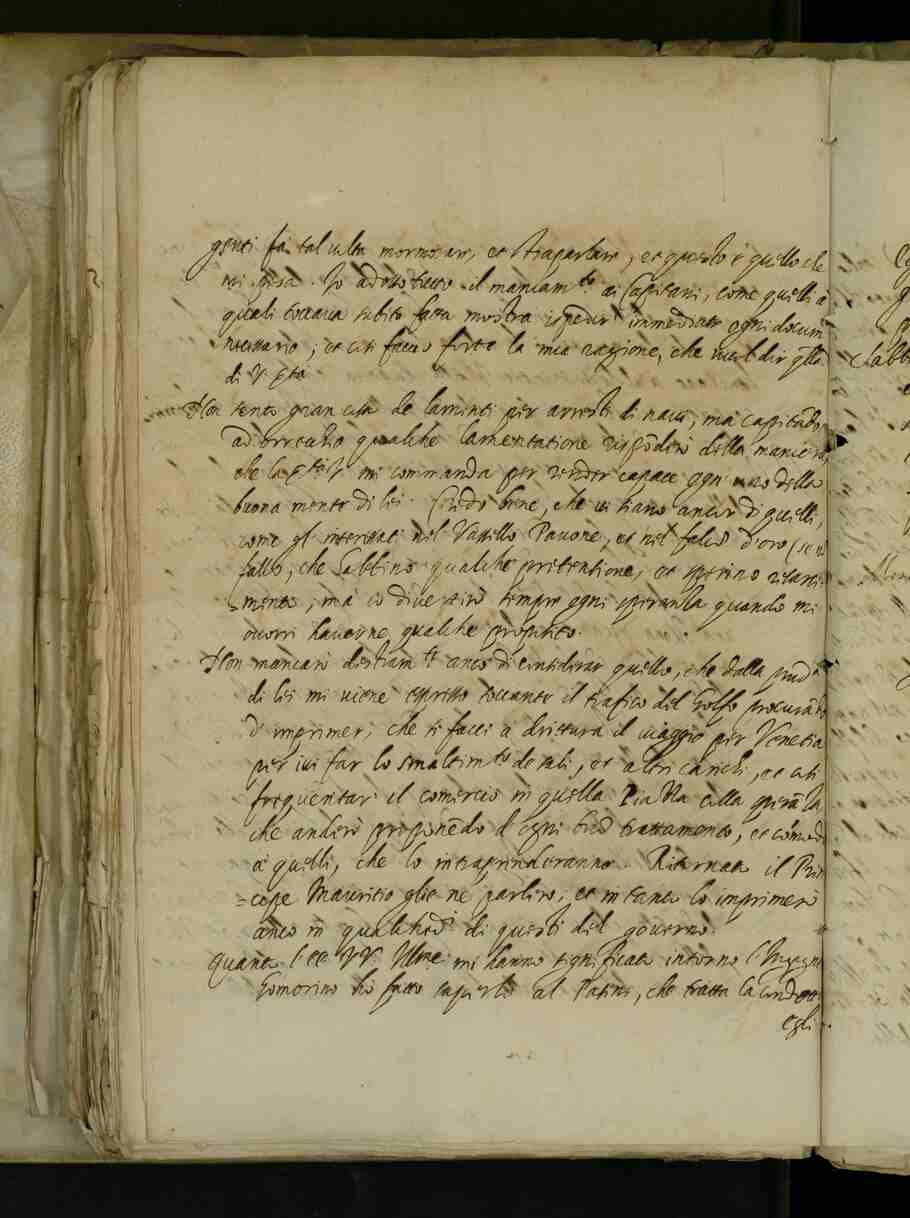 genti fà tal volta mormorar, et straparlare, et questo è quello che
mi pesa. Io addosso tutto il mancam.to ai Capitani, come quelli à
quali toccava subito fatta mostra ispedir immediate ogni docum
necessario; et così faccio forte la mia ragione, che vuol dir q̃lla
di V. Ser.tà
Non sento gran cosa de lamenti per arresti di navi, ma capitãdo
ad orrecchio qualche lamentatione rispõderò della maniera,
che la Ser.tà V. mi commanda per render capace ogn' uno della
buona mente di lei. Credo bene, che vi siano ancor di quelli,
come gl' interessati nel Vassello Pavone, et nel falcõ d'oro (se nõ
fallo, che habbino qualche pretentione, et sperino risarci-
mento, mà io divertirò sempre ogni speranza quando mi
occorri haverne qualche proposito.
Non mancarò destram.te anco di considerar quello, che dalla prud.a
di lei mi viene espresso toccante il trafico del Golfo procurãdo
d' imprimer, che si facci à drittura il viaggio per Venetia
per ivi far lo smaltim.to de sali, et altri carichi, et così
frequentar il comercio in quella Piazza colla sperãza
che anderò proponẽdo d' ogni buõ trattamento, et cõmodo
à quelli, che lo intraprenderanno. Ritornato il Prin
=cipe Mauritio gliene parlerò, et in tanto lo imprimerò
anco in qualched.o di questi del governo.
Quanto l' EE VV. Ill.me mi hanno significato intorno l' Ingegn
Gomorino hò fatto saperlo al Patins, che tratta la condott
egli